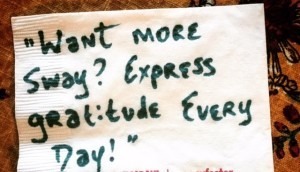 "Want more
Sway? Express
gratitude Every
Day!"